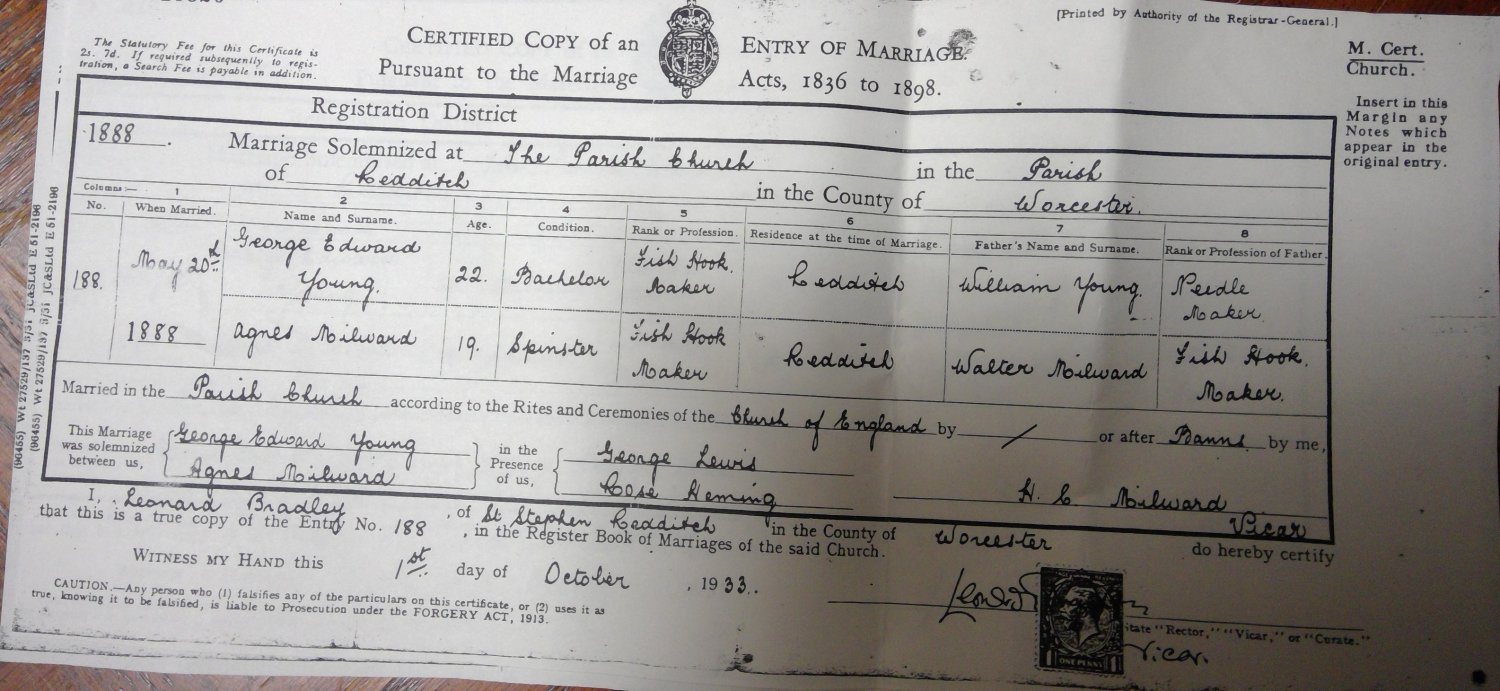 [Printed by Authority of the Registrar-General.]
CERTIFIED COPY of an ENTRY OF MARRIAGE.
Pursuant to the Marriage Acts, 1836 to 1898.
The Statutory Fee for this Certificate is
2s. 7d. If required subsequently to regis-
tration, a Search Fee is payable in addition.
M. Cert.
Church.
Insert in this
Margin any
Notes which
appear in the
original entry.
Registration District
1888. Marriage Solemnized at The Parish Church in the Parish
of Redditch in the County of Worcester.
Columns:— 1 2 3 4 5 6 7 8
No. When Married. Name and Surname. Age. Condition. Rank or Profession. Residence at the time of Marriage. Father's Name and Surname. Rank or Profession of Father.
188. May 20th 1888
George Edward Young. 22. Bachelor Fish Hook. Maker Redditch William Young. Needle Maker.
Agnes Milward 19. Spinster Fish Hook Maker Redditch Walter Milward Fish Hook. Maker.
Married in the Parish Church according to the Rites and Ceremonies of the Church of England by / or after Banns by me,
This Marriage was solemnized between us,
George Edward Young
Agnes Milward
in the Presence of us,
George Lewis
Rose Heming
H. C. Milward
Vicar
I, Leonard Bradley, of St Stephen Redditch in the County of Worcester do hereby certify
that this is a true copy of the Entry No. 188, in the Register Book of Marriages of the said Church.
WITNESS MY HAND this 1st day of October, 1933.
CAUTION.—Any person who (1) falsifies any of the particulars on this certificate, or (2) uses it as
true, knowing it to be falsified, is liable to Prosecution under the FORGERY ACT, 1913.
1 ONE PENNY 1
state "Rector," "Vicar," or "Curate."
Vicar.
(96455) Wt 27529/137 3/31 JC&SLtd E 51-2196
(96455) Wt 27529/137 3/31 JC&SLtd E 51-2196